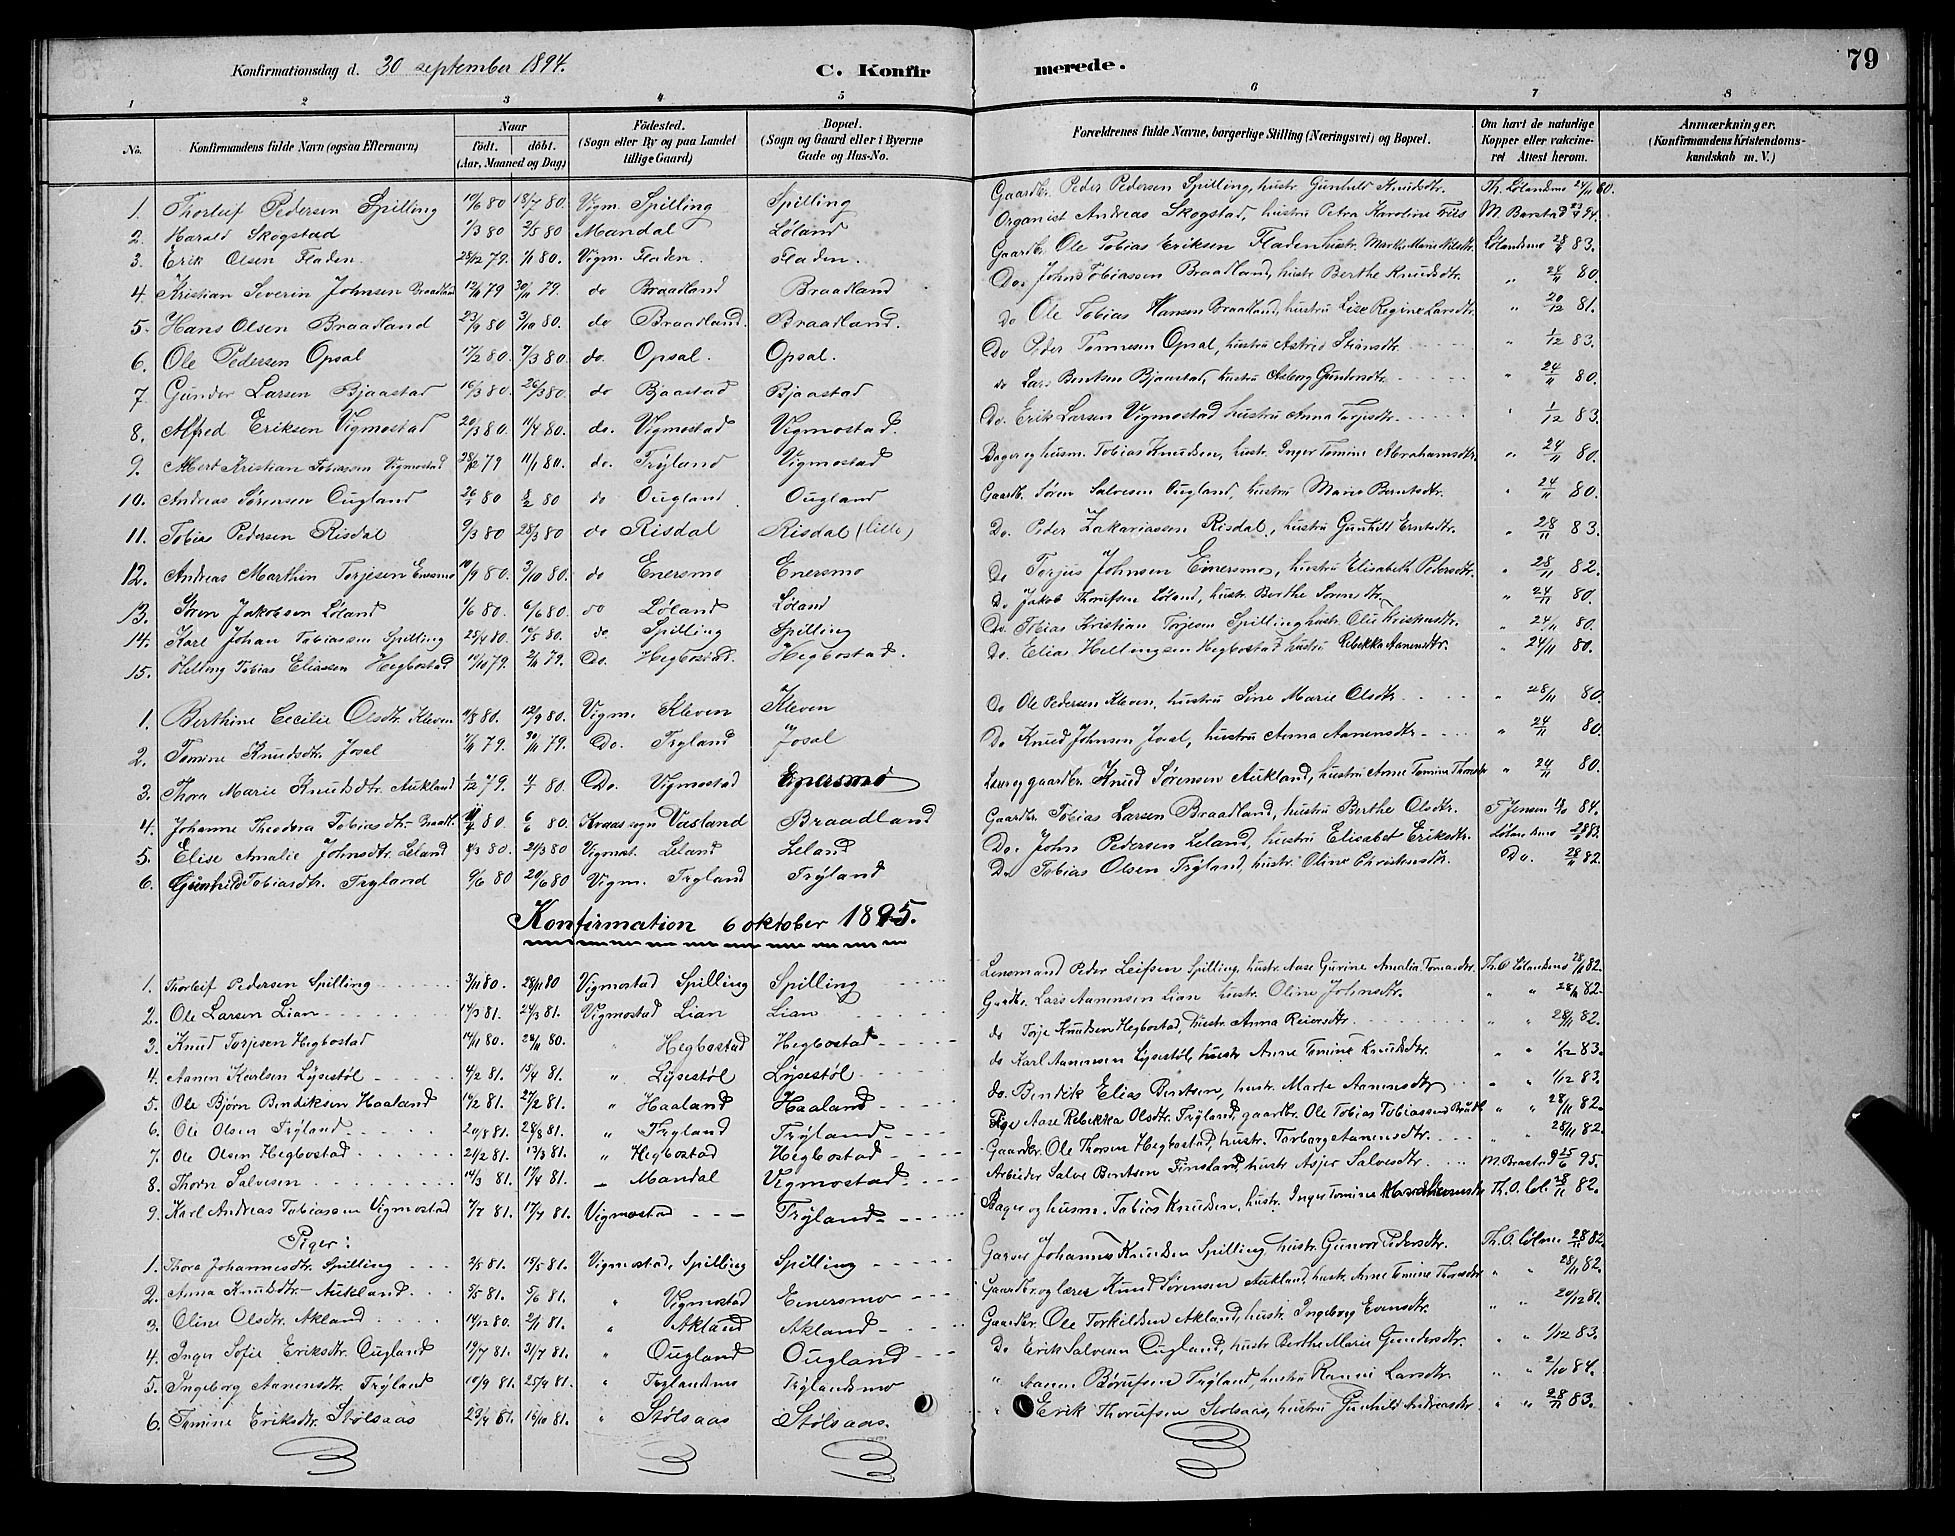 Konfirmationsdag d. 30 september 1894. C. Konfir merede. 79
1 2 3 4 5 6 7 8
No. Konfirmandens fulde Navn (ogsaa Efternavn) Naar født. døbt. (Aar, Maaned og Dag) Fødested. (Sogn eller By og paa Landet tillige Gaard) Bopæl. (Sogn og Gaard eller i Byerne Gade og Hus-No. Forældrenes fulde Navne, borgerlige Stilling (Næringsvei) og Bopæl. Om havt de naturlige Kopper eller vakcineret Attest herom. Anmærkninger. (Konfirmandens Kristendomskundskab m. V.)
1. Thorleif Pedersen Spilling 10/6 80 18/7 80. Vigm. Spilling Spilling Gaardbr. Peder Pedersen Spilling, hustr. Gunhild Knudsdtr. Th. Lølandsmo 24/11 80.
2. Harald Skogstad 1/3 80 2/5 80 Mandal Løland Organist Andreas Skogstad, hustru Petra Karoline Friis M. Barstad 23/4 94.
3. Erik Olsen Fladen. 28/12 79. 1/1 80. Vigm. Fladen. Fladen. Gaardbr. Ole Tobias Eriksen Fladen hustr. Marthe Marie Nilsdtr. Lølandsmo 28/11 83.
4. Kristian Severin Johnsen Braadland 12/11 79 30/11 79. do Braadland Braadland Do. John Tobiassen Braadland, hustr. Berthe Knudsdtr. " 24/11 80.
5. Hans Olsen Braadland 23/9 80 3/10 80. do Braadland. Braadland. Do Ole Tobias Hansen Braadland, hustru Lise Regine Larsdtr. " 20/12 81.
6. Ole Pedersen Opsal 17/2 80. 7/3 80. do. Opsal. Opsal. Do Peder Tønnesen Opsal, hustru Astrid Stiansdtr. " 1/12 83.
7. Gunder Larsen Bjaastad 16/3 80. 26/3 80. do Bjaastad Bjaastad do Lars Bentsen Bjaastad, hustru Asborg Gundersdtr. " 24/11 80.
8. Alfred Eriksen Vigmostad 20/3 80. 11/4 80. do. Vigmostad Vigmostad. Do. Erik Larsen Vigmostad hustru Anna Torjesdtr. " 1/12 83.
9. Albert Kristian Tobiassen Vigmostad 28/12 79 11/1 80. do. Trÿland Vigmostad Bager og husm. Tobias Knudsen, hustr. Inger Tomine Abrahamsdtr. " 24/11 80.
10. Andreas Sørensen Ougland 26/1 80 8/2 80 do Ougland Ougland Gaardb. Søren Salvesen Ougland, hustru Maria Berntsdtr. " 24/11 80.
11. Tobias Pedersen Risdal 9/3 80 28/3 80 do Risdal Risdal (lille) Do. Peder Zakariassen Risdal, hustru Gunhild Erntsdtr. " 28/11 83.
12. Andreas Marthin Torjesen Enersmo 10/9 80. 3/10 80. do Enersmo Enersmo Do Torjus Johnsen Enersmo, hustru Elisabeth Pedersdtr. " 28/11 82.
13. Søren Jakobsen Løland 1/6 80. 6/6 80. do Løland Løland Do Jakob Thorufsen Løland, hustr. Berthe Sørensdtr. " 24/11 80.
14. Karl Johan Tobiassen Spilling 25/4 80. 17/5 80. do Spilling Spilling Do. Tobias Kristian Torjesen Spilling hustr. Oliv Kristensdtr. " 24/11 80.
15. Helling Tobias Eliassen Hegbostad 14/10 79. 2/11 79. Do. Hegbostad. Hegbostad. Do. Elias Hellingsen Hegbostad hustru Rebekka Aanensdtr. " 24/11 80.
1. Berthine Cecilie Olsdtr. Kleven 11/8 80. 12/9 80. Vigm. Kleven Kleven Do Ole Pedersen Kleven, hustru Sine Marie Olsdtr. " 28/11 80.
2. Tomine Knudsdtr. Josal 7/11 79. 30/11 79. Do. Trÿland Josal Do Knud Johnsen Josal, hustru Anna Aanensdtr. " 24/11 80.
3. Thora Marie Knudsdtr. Aukland 1/12 79. 4/1 80. Do. Vigmostad Enersmo Lærer og gaardbr. Knud Sørensen Aukland, hustru Anne Tomine Thorsdtr. " 24/11 80.
4. Johanne Theodora Tobiasdtr. Braadl. 11/4 80. 6/6 80. Kraas sogn Vasland Braadland Gaardbr. Tobias Larsen Braadland, hustru Berthe Olsdtr. T. Jensen 84.
5. Elise Amalie Johnsdtr. Leland 4/3 80. 21/3 80 Vigmost. Leland Leland Do. John Pedersen Leland, hustru Elisabet Eriksdtr. Lølandsmo 28/11 82.
6. Gunhild Tobiasdtr. Trÿland 9/6 80 20/6 80 Vigm. Trÿland Trÿland Do Tobias Olsen Trÿland, hustr. Oline Christensdtr. Do. 28/11 82.
Konfirmation 6 oktober 1895.
1. Thorleif Pedersen Spilling 3/11 80. 28/11 80 Vigmostad Spilling Spilling Lensmand Peder Leifsen Spilling, hustr. Aase Gurine Amalia Tomasdtr. Th. O Lølandsmo 28/11 82.
2. Ole Larsen Lian 14/3 81. 24/3 81. Vigmostad Lian Lian Gardbr. Lars Aanensen Lian hustr. Oline Johnsdtr. " " 28/11 82.
3. Knud Torjesen Hegbostad 14/11 80. 28/11 80. " Hegbostad Hegbostad do Torje Knudsen Hegbostad, hustr. Anna Reiersdtr. " " 28/11 82.
4. Aanen Karlsen Lÿsestøl 4/2 81. 15/4 81. " Lÿsestøl Lÿsestøl do Karl Aanensen Lÿsestøl, hustr. Anne Tomine Knudsdtr. " " 1/12 83.
5. Ole Bjørn Bendiksen Haaland 10/2 81. 27/2 81. " Haaland Haaland do. Bendik Elias Bentsen, hustr. Marte Aanensdtr. " " 1/12 83.
6. Ole Olsen Trÿland 24/8 81. 28/8 81. " Trÿland Trÿland Pige Aase Rebekka Olsdtr. Trÿland, gaardbr. Ole Tobias Tobiassen " " 28/11 82.
7. Ole Olsen Hegbostad 21/2 81. 13/3 81. " Hegbostad Hegbostad Gaardbr. Ole Thorsen Hegbostad, hustr. Torborg Aanensdtr. " " 28/11 82.
8. Thorn Salvesen 14/3 81. 17/4 81. " Mandal Vigmostad Arbeider Salve Bentsen Finsland, hustr. Asjer Salvesdtr. M. Brastad 25/6 95.
9. Karl Andreas Tobiassen Vigmostad 7/7 81. 17/7 81. Vigmostad Trÿland Bager og husm. Tobias Knudsen, hustr. Inger Tomine Th. O. Løl. 28/11 82.
Piger:
1. Thora Johannesdtr. Spilling 2/5 81. 15/5 81. Vigmostad, Spilling Spilling Garver Johannes Knudsen Spilling, hustr. Gunvor Pedersdtr. Th. O Lølmo 28/11 82.
2. Anna Knudsdtr. Aukland. 5/5 81. 5/6 81. " Vigmostad Enersmo Gaardbr. og lærer Knud Sørensen Aukland, hustr. Anne Tomine Thorsdtr. " " 28/11 82.
3. Oline Olsdtr. Akland 14/12 80. 2/1 81. " Akland Akland Gaardbr. Ole Torkildsen Akland, hustr. Ingeborg Evensdtr. " " 20/12 81.
4. Inger Sofie Eriksdtr. Ougland 19/7 81. 31/7 81. " Ougland Ougland Do Erik Salvesen Ougland, hustr. Berthe Marie Gundersdtr. " " 1/12 83.
5. Ingeborg Aanensdtr. Trÿland 10/9 81. 25/9 81. " Trÿlandsmo Trÿlandsmo " Aanen Børufsen Trÿland, hustru Rannei Larsdtr. " " 2/10 84.
6. Tomine Eriksdtr. Stølsaas 29/9 81. 16/10 81. " Stølsaas Stølsaas. " Erik Thorufsen Stølsaas, hustru Gunhild Andreasdtr. " " 28/11 83.